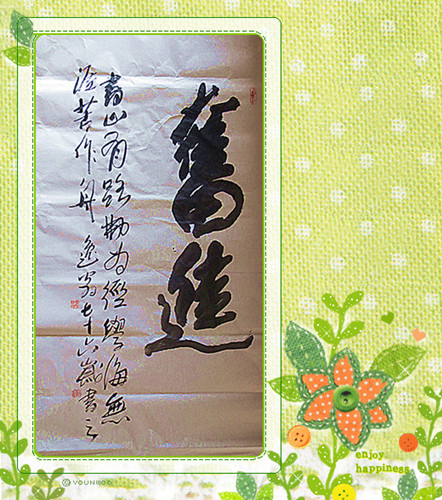 奮進
書山有路勤为徑學海無
涯苦作舟 逸翁七十六歲書之
enjoy
happiness